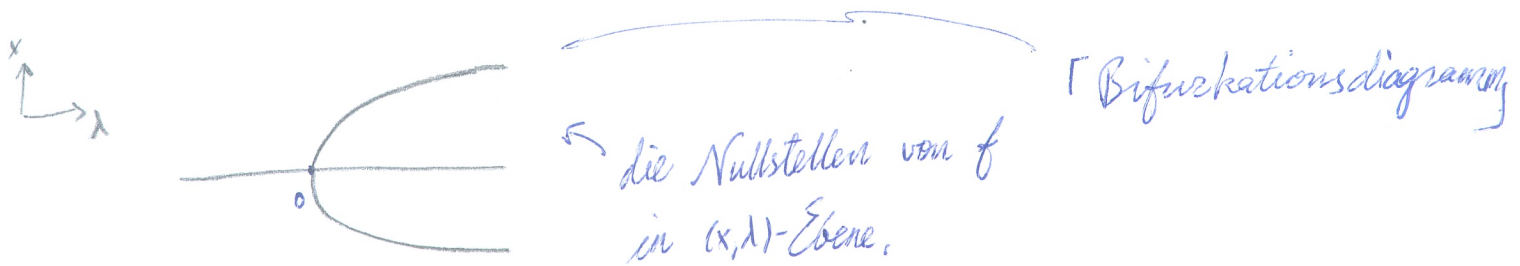 x
λ
0
die Nullstellen von f
in (x,λ)-Ebene.
Bifurkationsdiagramm